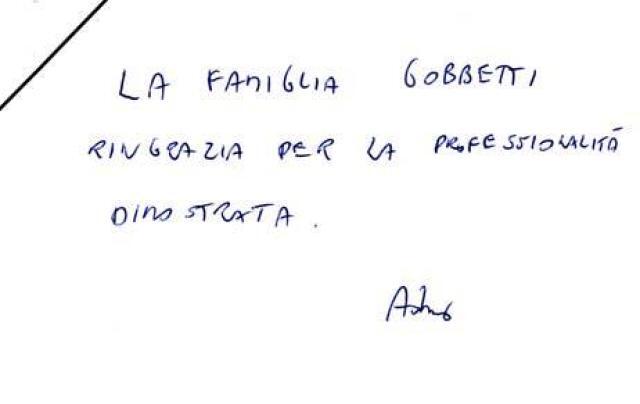 LA FAMIGLIA GOBBETTI
RINGRAZIA PER LA PROFESSIONALITÀ
DIMOSTRATA.